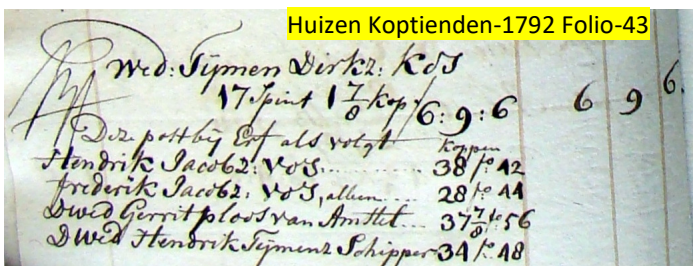 Huizen Koptienden-1792 Folio-43
Wed: Tijmen Dirkz: Kos
17 Spint 1 7/8 kop 6:9:6 6 9 6.
Deze post bij Erf als volgt Koppen
Hendrik Jacobz: Vos.......... 38 fo. 42
frederik Jacobz: Vos, alleen.... 28 fo 44
Dwed Gerrit ploos van Amstel... 37 7/8 fo 56
D Wed Hendrik Tijmenz Schipper 34 fo. 48